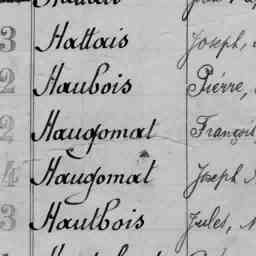 3 Hattais Joseph,
2 Haubois Pierre,
2 Haugomat François
4 Haugomat Joseph
3 Hautbois Jules,